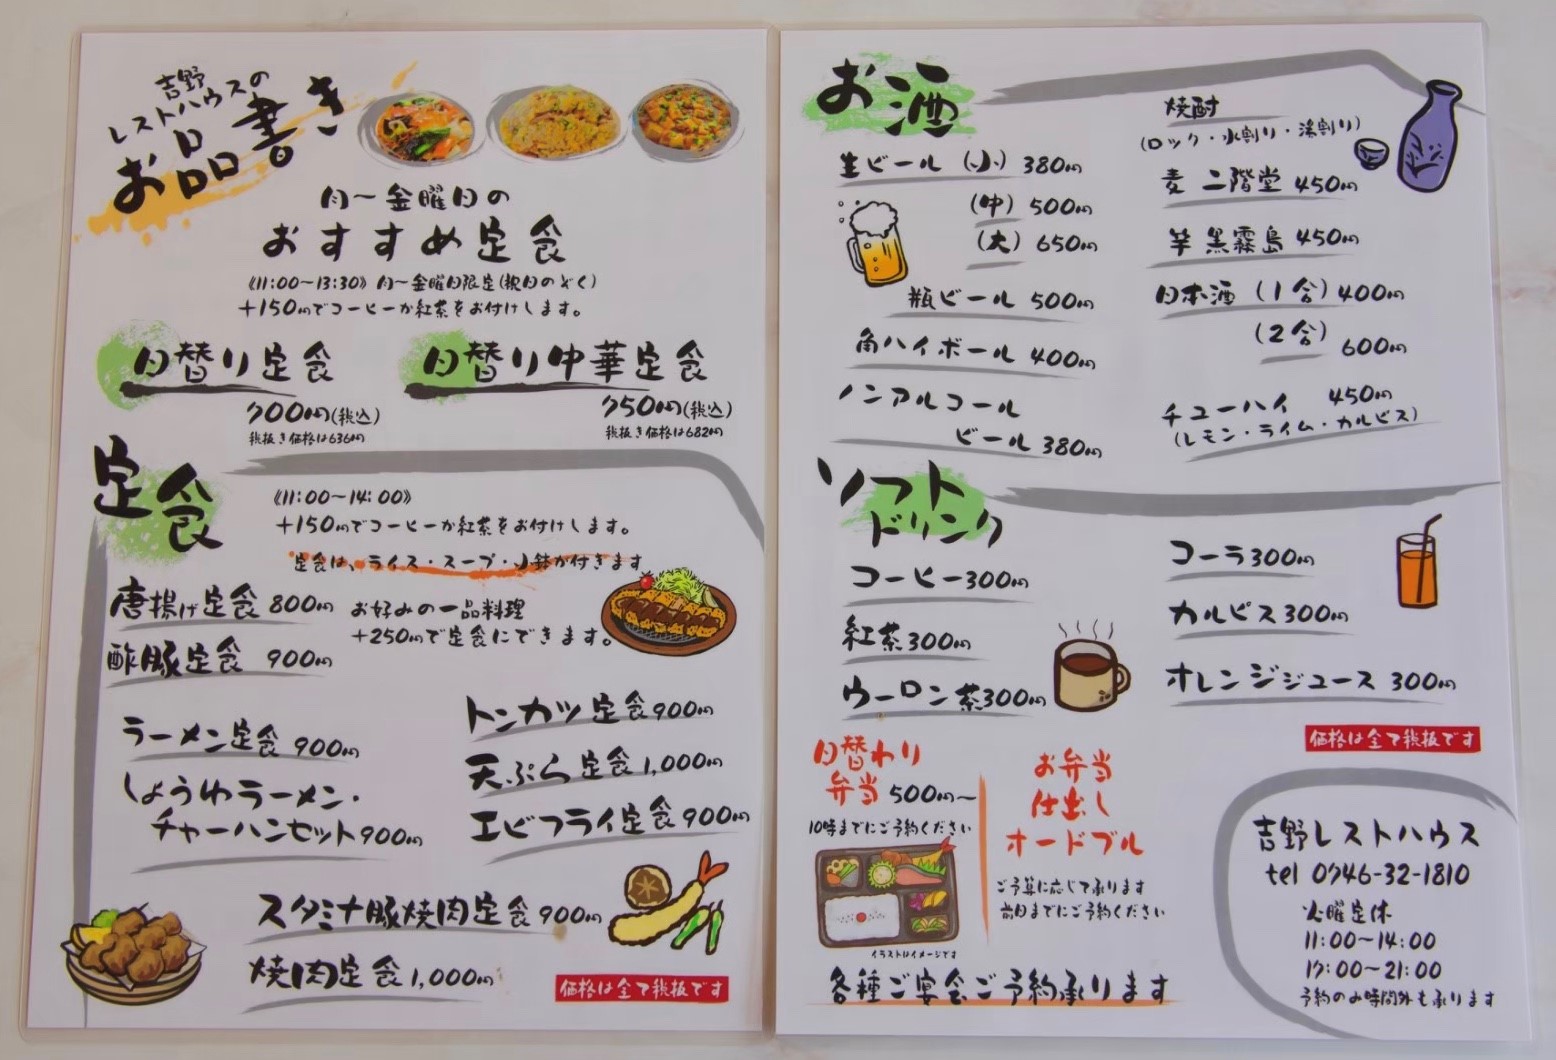 吉野
レストハウスの
お品書き
月～金曜日の
おすすめ定食
《11:00～13:30》月～金曜日限定(祝日のぞく)
+150円でコーヒーか紅茶をお付けします。
日替り定食
700円(税込)
税抜き価格は636円
日替り中華定食
750円(税込)
税抜き価格は682円
定食
《11:00～14:00》
+150円でコーヒーか紅茶をお付けします。
定食は、ライス・スープ・小鉢が付きます
唐揚げ定食 800円
酢豚定食 900円
お好みの一品料理
+250円で定食にできます。
ラーメン定食 900円
しょうゆラーメン・
チャーハンセット900円
トンカツ定食900円
天ぷら定食1,000円
エビフライ定食900円
スタミナ豚焼肉定食900円
焼肉定食1,000円
価格は全て税抜です
お酒
生ビール (小) 380円
(中) 500円
(大) 650円
瓶ビール 500円
角ハイボール 400円
ノンアルコール
ビール 380円
焼酎
(ロック・水割り・湯割り)
麦 二階堂 450円
芋 黒霧島 450円
日本酒 (1合) 400円
(2合) 600円
チューハイ 450円
(レモン・ライム・カルピス)
ソフト
ドリンク
コーヒー300円
紅茶300円
ウーロン茶300円
コーラ300円
カルピス300円
オレンジジュース 300円
価格は全て税抜です
日替わり
弁当 500円～
10時までにご予約ください
イラストはイメージです
お弁当
仕出し
オードブル
ご予算に応じて承ります
前日までにご予約ください
各種ご宴会ご予約承ります
吉野レストハウス
tel 0946-32-1810
火曜定休
11:00～14:00
17:00～21:00
予約のみ時間外も承ります